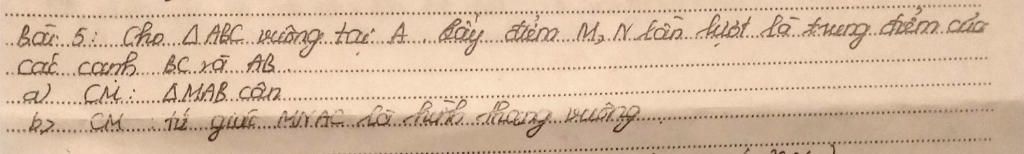 Bài 5: Cho Δ ABC vuông tại A. Lấy điểm M, N lần lượt là trung điểm của
các cạnh BC và AB.
a) CM: Δ MAB cân
b) CM: tứ giác MNAC là hình thang vuông.